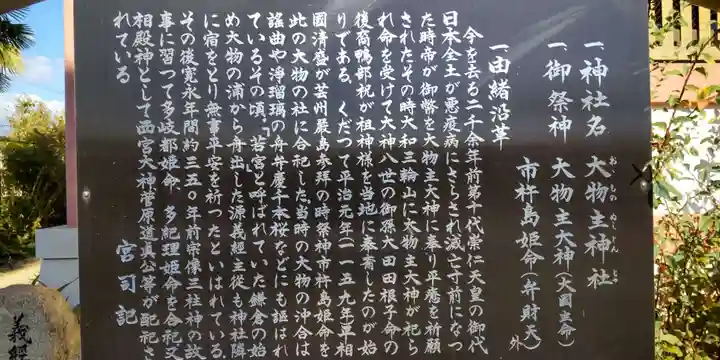 一、神社名 大物主神社
おおものぬしじんじゃ
一、御祭神 大物主大神(大国主命)
市杵島姫命(弁財天)
外
一、由緒沿革
今を去る二千余年前第十代崇仁天皇の御代
日本全土が悪疫病にさらされ滅亡寸前になつ
た時帝が御幣を大物主大神に奉り平癒を祈願
されたその時大和三輪山に大物主大神が祀ら
れ命を受けて大神八世の御孫大田田根子命の
後裔鴨部祝が祖神様を当地に奉斎したのが始
りである くだつて平治元年(一一五九年)平相
國清盛が芸州厳島参拝の時祭神市杵島姫命を
此の大物の社に合祀した 当時の大物の沖合は
謡曲や浄瑠璃の舟弁慶千本桜などにも謳はれ
ているその頃「若宮」と呼ばれていた鎌倉の始
め大物の浦から舟出した源義經主従も神社隣
に宿をとり無事平安を祈つたといはれている
その後寛永年間約三五〇年前宗像三柱神の故
事に習つて多岐都姫命 多紀理姫命を合祀又
相殿神として西宮大神菅原道真公等が配祀さ
れている
宮司記
義經